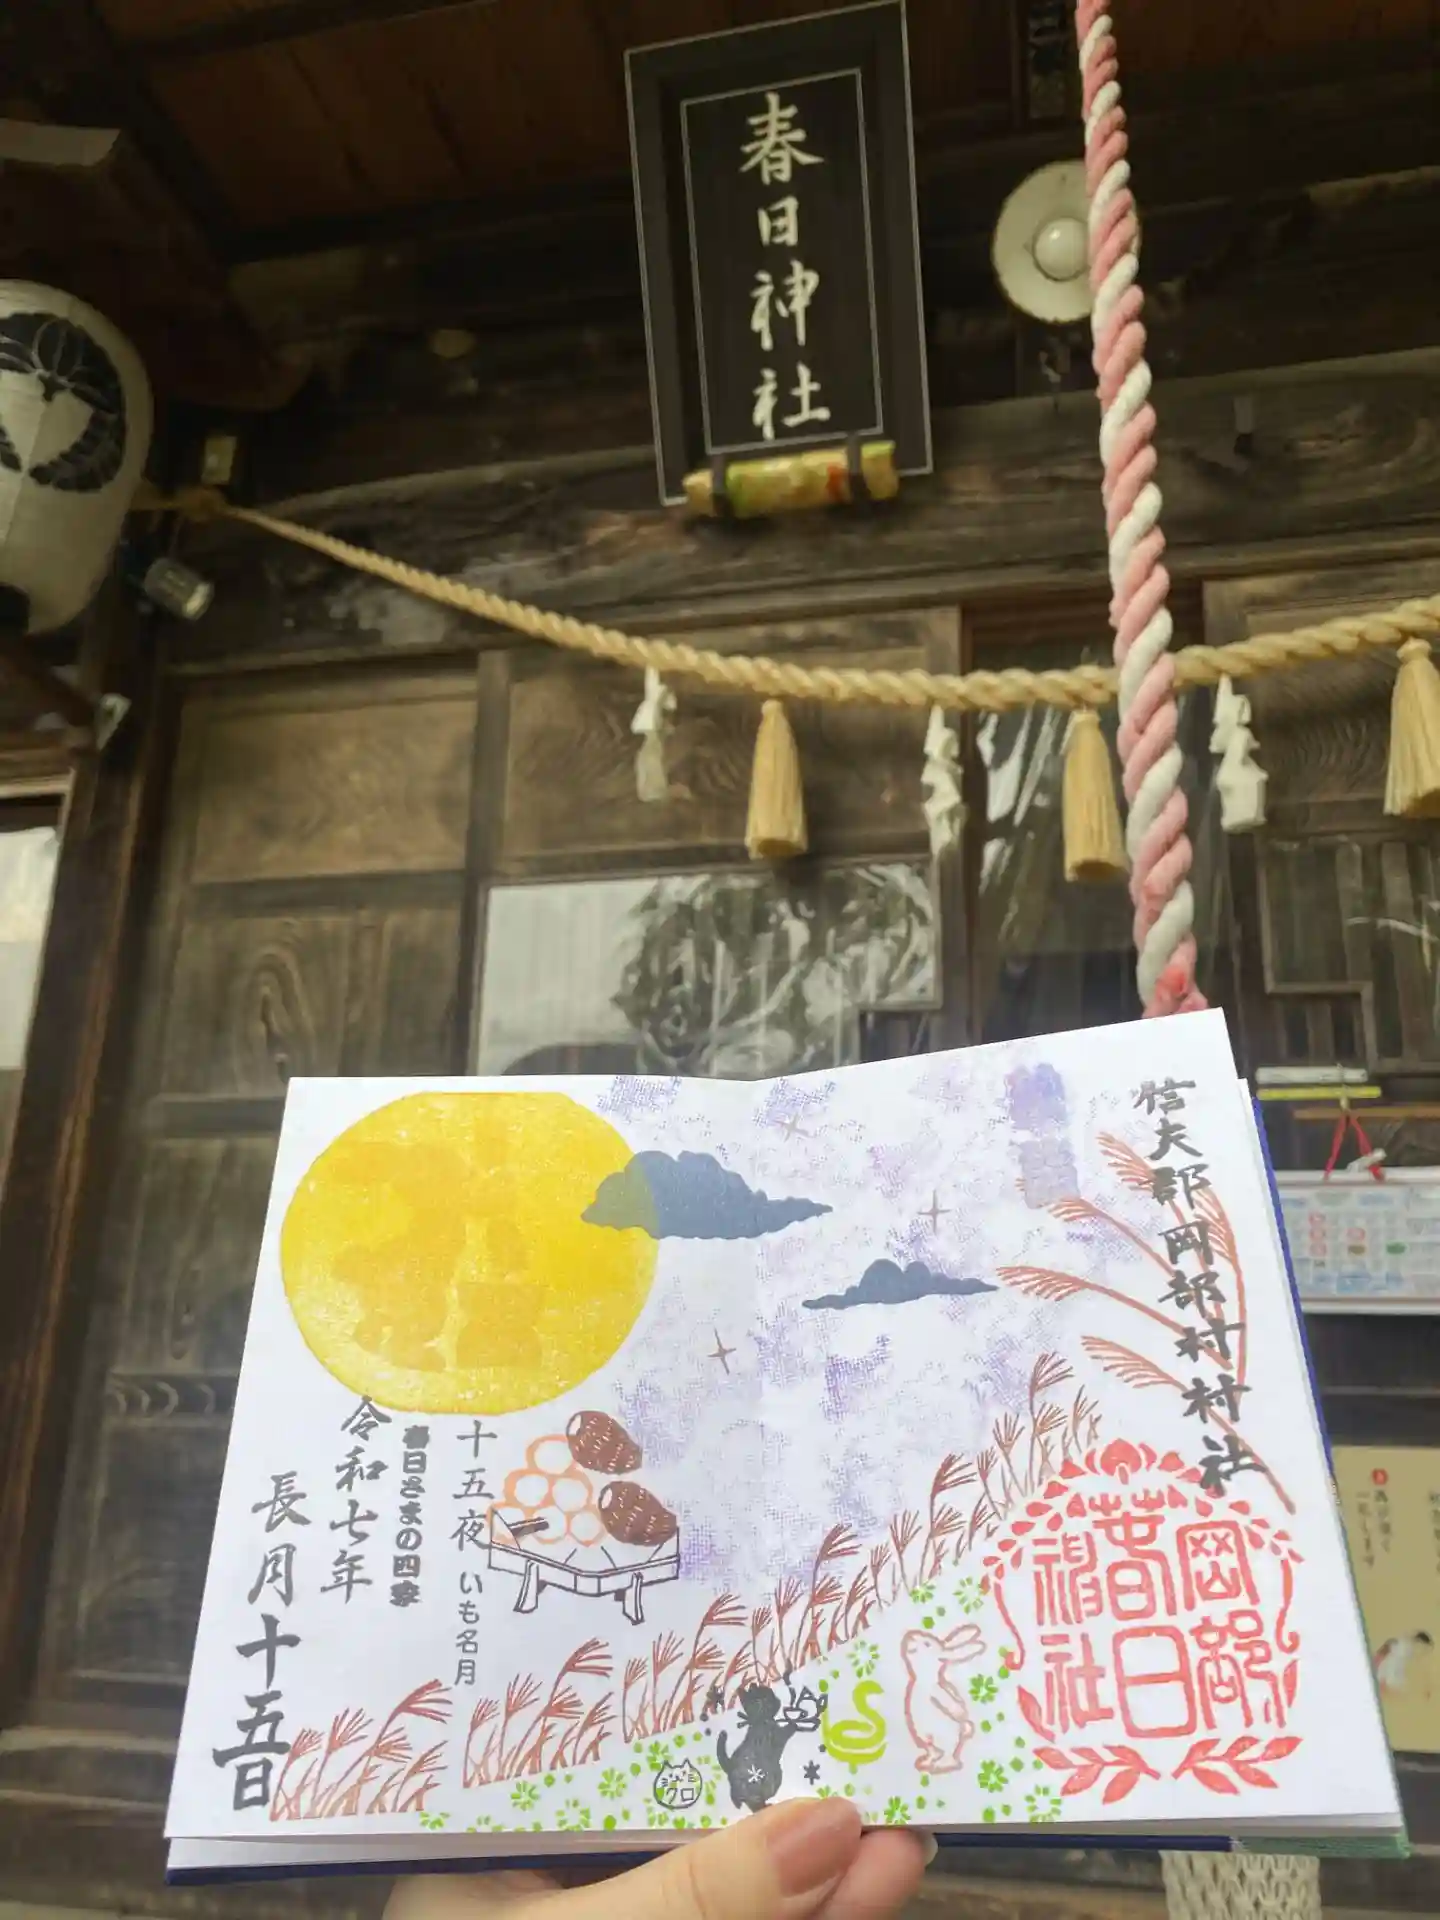 春日神社
信夫郡岡部村村社
岡部
春日
神社
十五夜 いも名月
春日さまの四季
令和七年
長月十五日
クロ